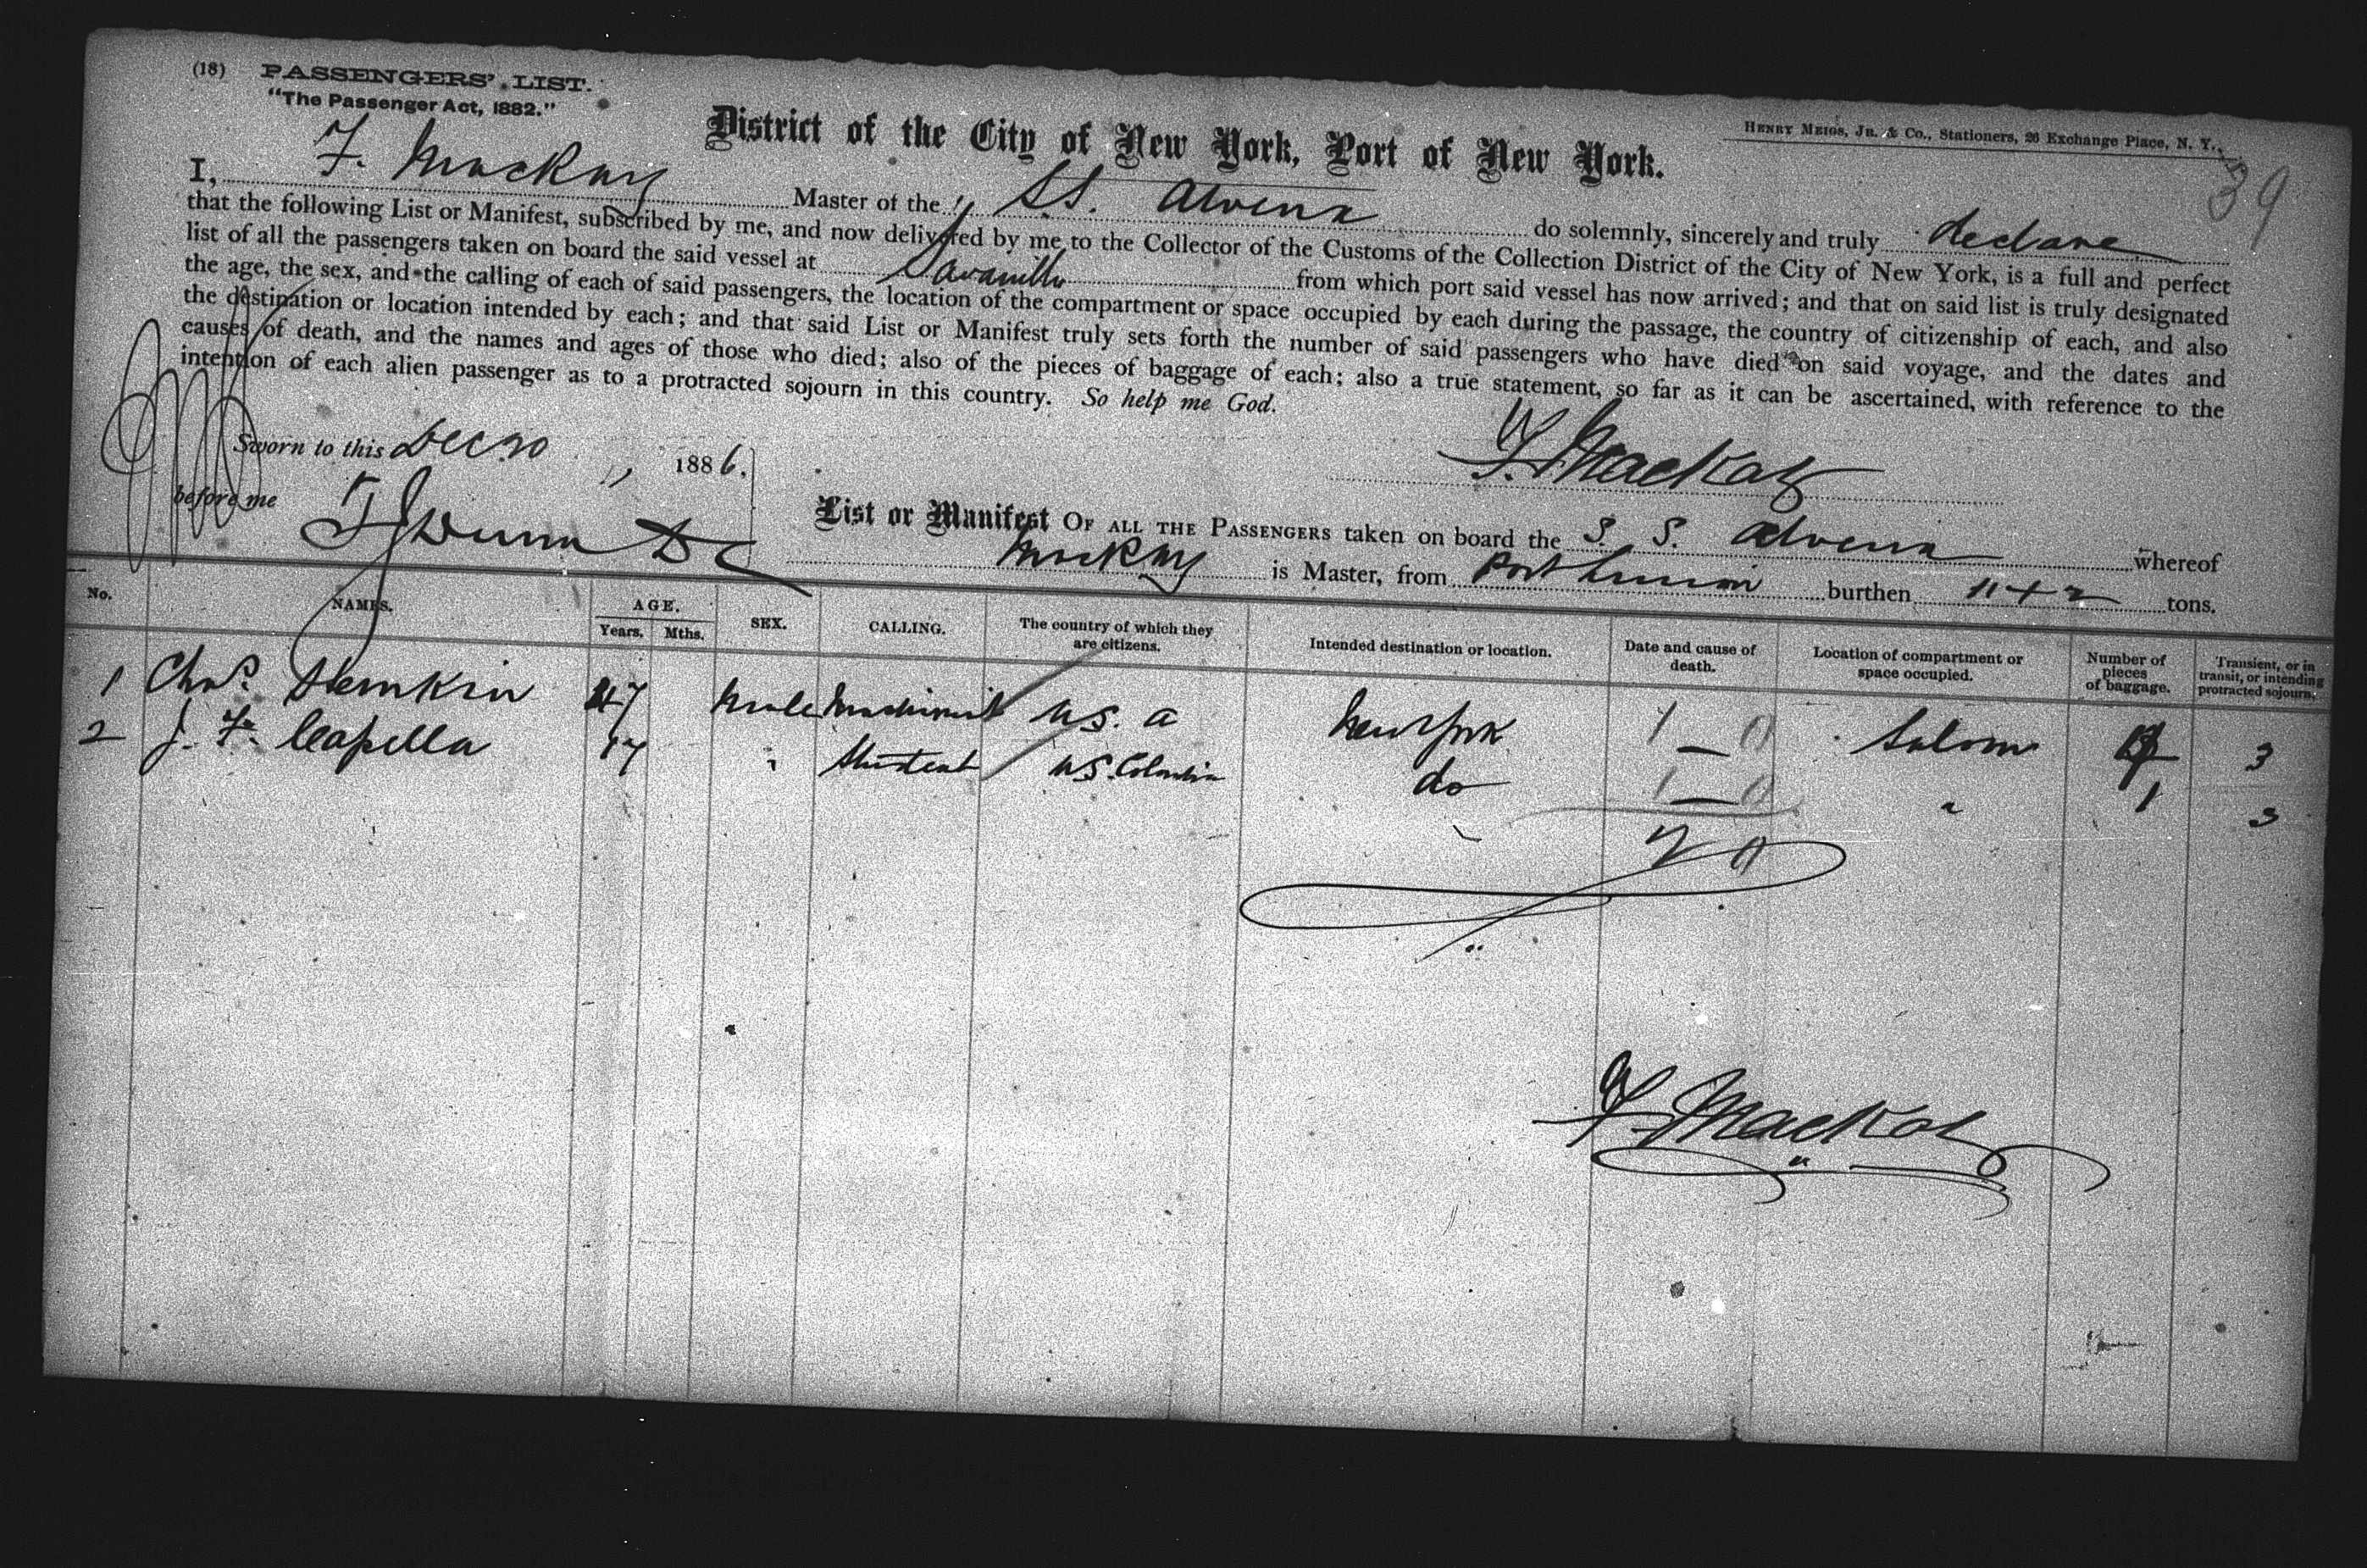 (18) PASSENGERS' LIST.
"The Passenger Act, 1882."
HENRY MEIGS, JR. & CO., Stationers, 26 Exchange Place, N. Y.
39
District of the City of New York, Port of New York.
I, F. Mackay Master of the S.S. Alvena do solemnly, sincerely and truly declare
that the following List or Manifest, subscribed by me, and now delivered by me to the Collector of the Customs of the Collection District of the City of New York, is a full and perfect
list of all the passengers taken on board the said vessel at Savanilla from which port said vessel has now arrived; and that on said list is truly designated
the age, the sex, and the calling of each of said passengers, the location of the compartment or space occupied by each during the passage, the country of citizenship of each, and also
the destination or location intended by each; and that said List or Manifest truly sets forth the number of said passengers who have died on said voyage, and the dates and
causes of death, and the names and ages of those who died; also of the pieces of baggage of each; also a true statement, so far as it can be ascertained, with reference to the
intention of each alien passenger as to a protracted sojourn in this country. So help me God.
Sworn to this Dec 20, 1886.
F. Mackay
before me
List or Manifest OF ALL THE PASSENGERS taken on board the S. S. Alvena whereof
Mackay is Master, from Port Limon burthen 1142 tons.
No. NAMES. AGE. Years. Mths. SEX. CALLING. The country of which they are citizens. Intended destination or location. Date and cause of death. Location of compartment or space occupied. Number of pieces of baggage. Transient, or in transit, or intending protracted sojourn.
1 Chas. 47 Male Machinist U.S. A New York 1 — 0 Saloon 3
2 J. F. Capella 17 " Student U.S. Colombia do 1 — 0 " 1 3
2 0
F. Mackay